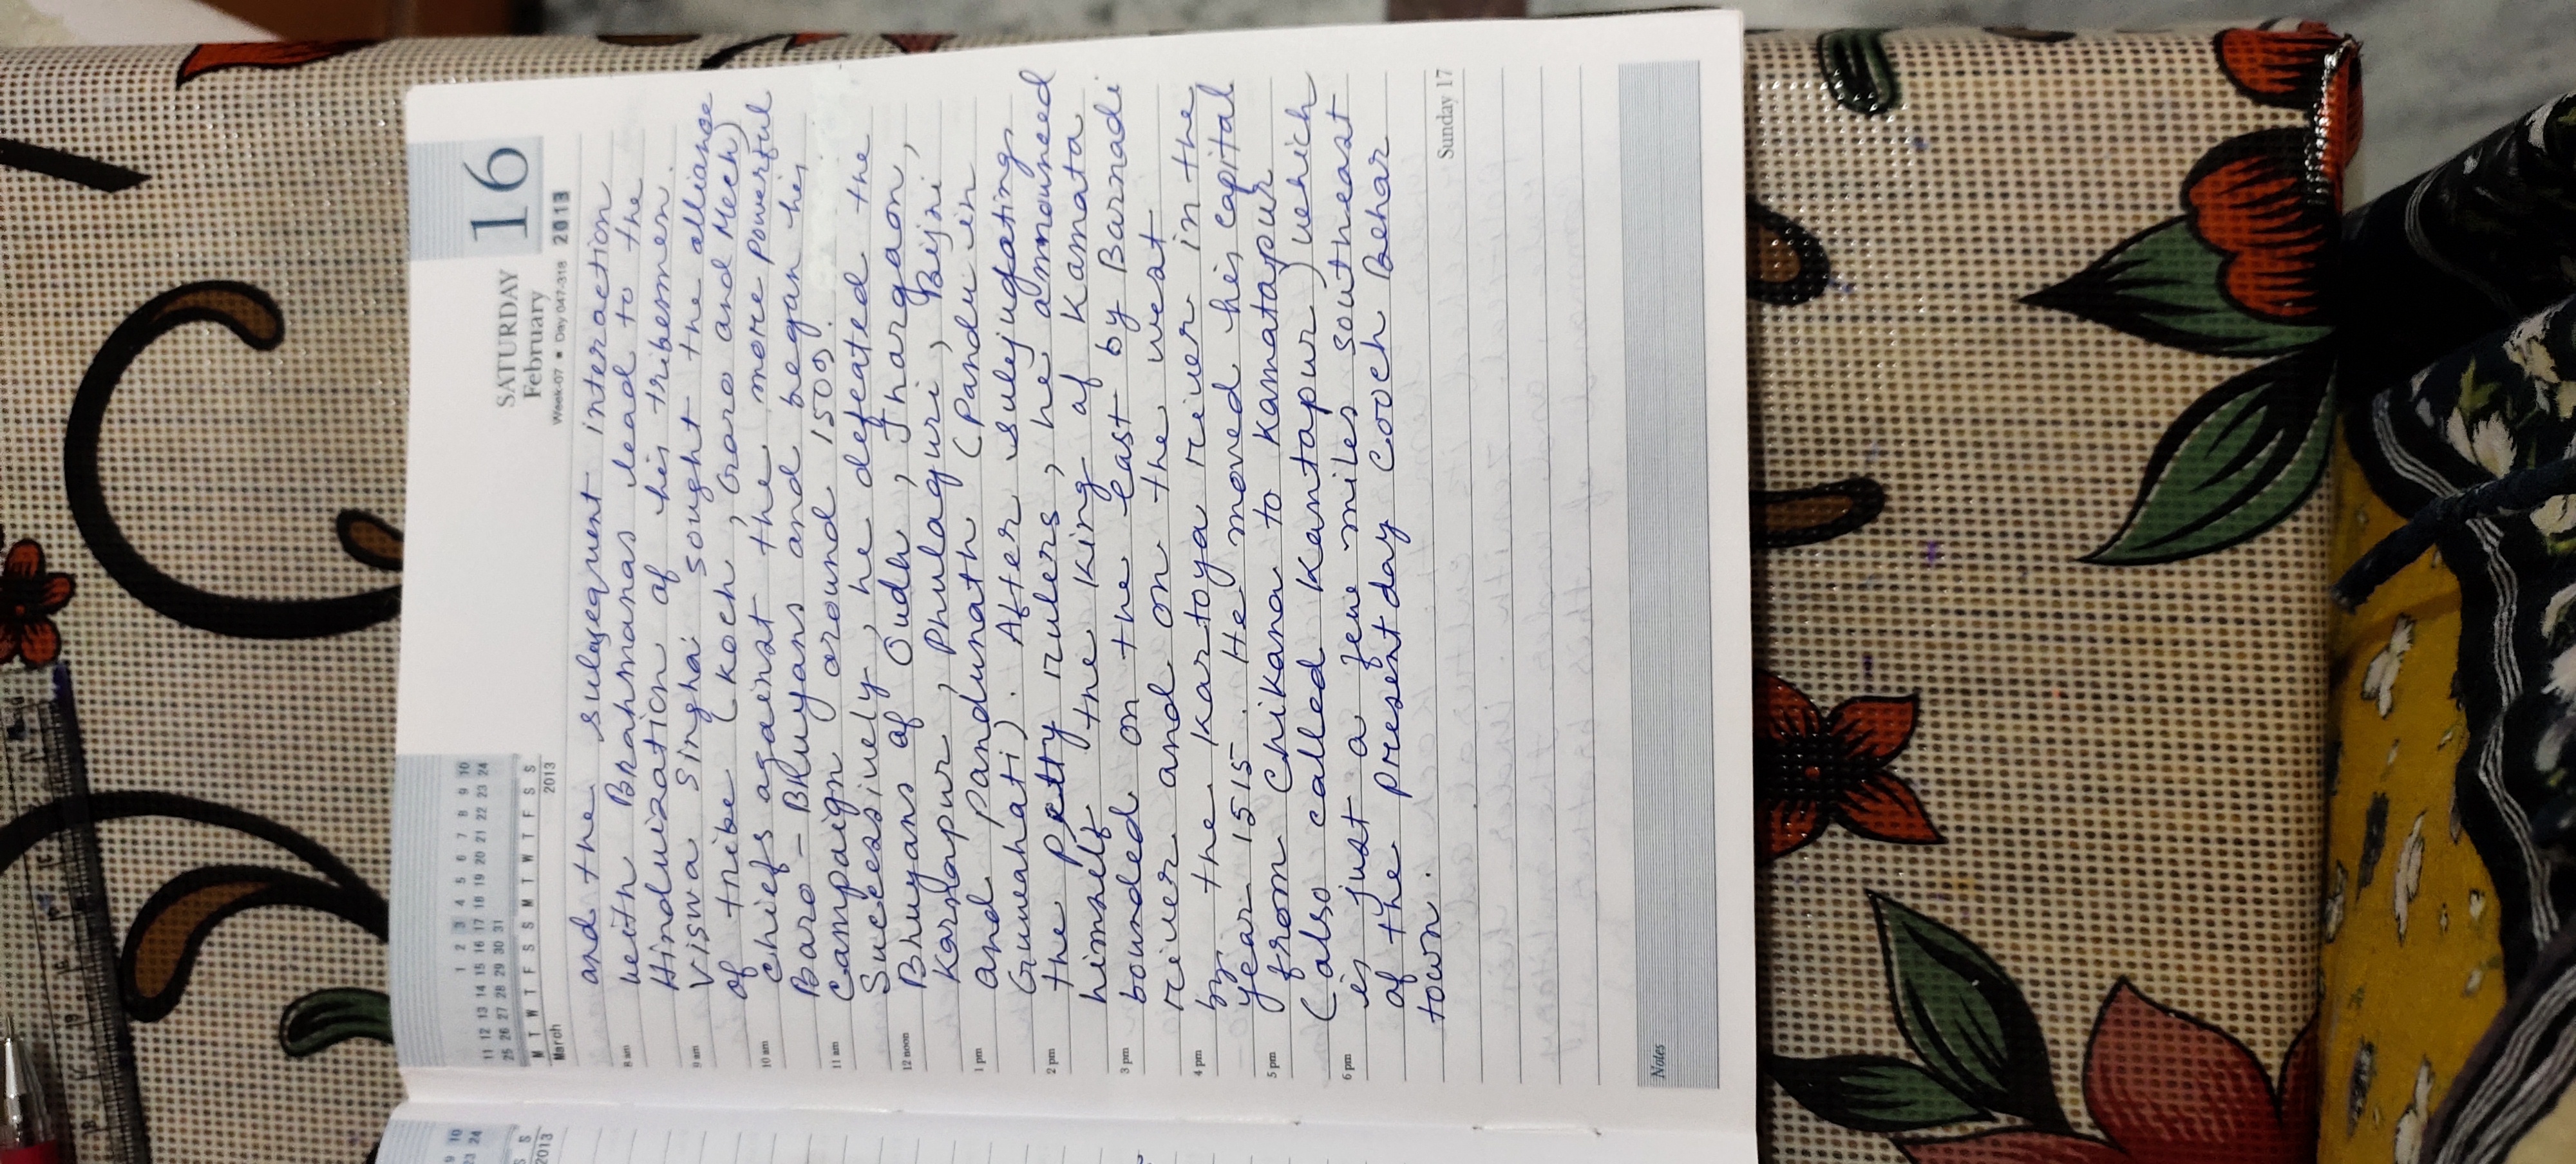 11 12 13 14 15 16 17 18 19 20 21 22 23 24
25 26 27 28 29 30 31
M T W T F S S M T W T F S S
March 2013
SATURDAY
February
16
Week-07 ■ Day 047-318 2013
and the subsequent interaction
8 am
with Brahmanas lead to the
Hinduization of his tribesmen.
9 am
Viswa Singha sought the alliance
of tribe (Koch, Garo and Mech)
10 am
chiefs against the more powerful
Baro-Bhuyans and began his
11 am
Campaign around 1509.
Successively, he defeated the
12 noon
Bhuyans of Oudh, Jhargaon,
Karnapur, Phulaguri, Bijni
1 pm
and Pandunath (Pandu in
Guwahati). After subjugating
2 pm
the petty rulers, he announced
himself the King of Kamata
3 pm
bounded on the east by Barnadi
river and on the west
4 pm
by the Kartoya river in the
year 1515. He moved his capital
5 pm
from Chikana to Kamatapur
(also called Kamtapur) which
6 pm
is just a few miles southeast
of the present day Cooch Behar
town.
Sunday 17
Notes